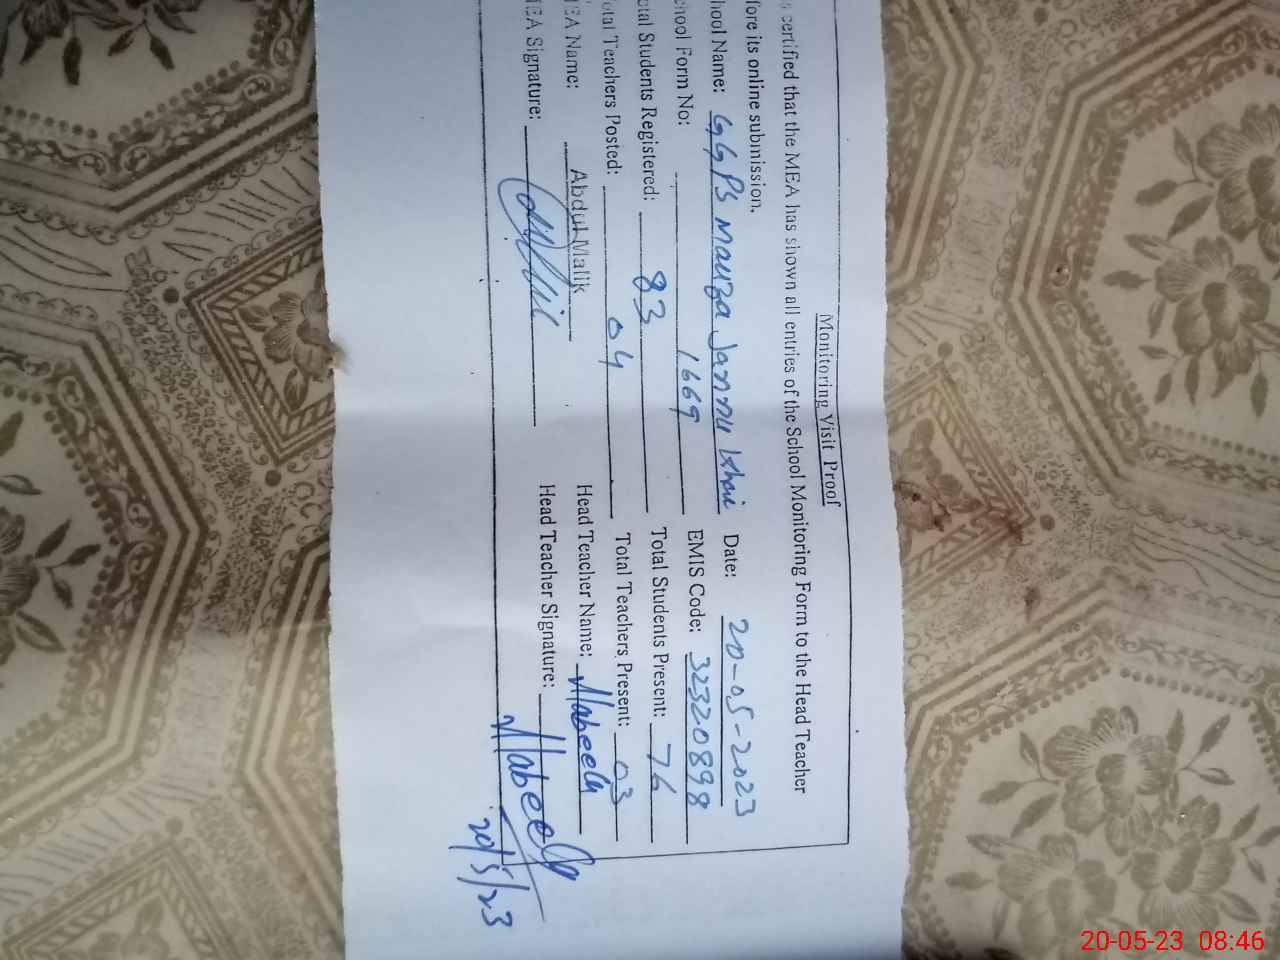 Monitoring Visit Proof
certified that the MEA has shown all entries of the School Monitoring Form to the Head Teacher
fore its online submission.
hool Name: GGPS Mauza Jannu Date: 20-05-2023
chool Form No: 1669 EMIS Code: 32320898
otal Students Registered: 83 Total Students Present: 76
otal Teachers Posted: 04 Total Teachers Present: 03
EA Name: Abdul Malik Head Teacher Name: Nabeela
EA Signature: Head Teacher Signature: Nabeela
20/5/23
20-05-23 08:46